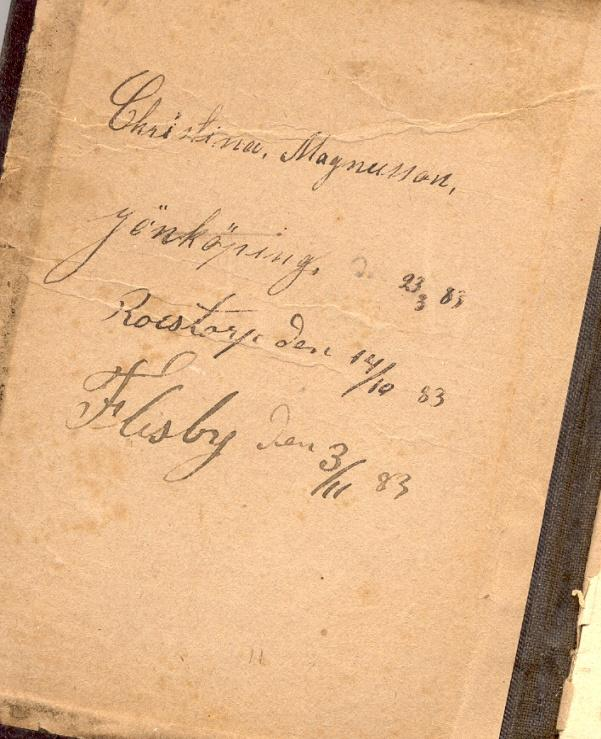 Christina, Magnusson,
Jönköping, d. 23/3 83
Rocstorp den 14/10 83
Flisby den 3/11 83
11